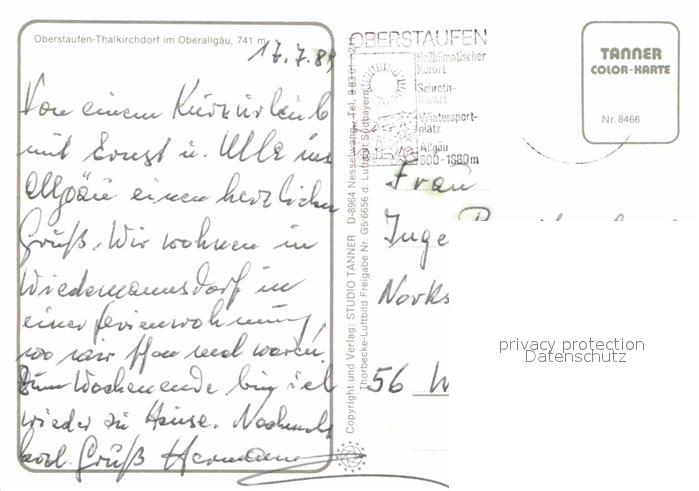 Oberstaufen-Thalkirchdorf im Oberallgäu, 741 m
17.7.89
Von einem Kurzurlaub
mit Ernst u. Ulle ins
Allgäu einen herzlichen
Gruß. Wir wohnen in
Wiedemannsdorf in
einer Ferienwohnung,
wo wir schon mal waren.
Zum Wochenende bin ich
wieder zu Hause. Nochmals
herzl. Gruß Hermann
Copyright und Verlag: STUDIO TANNER D-8964 Nesselwang, Tel. 0 83 61
Thorbecke-Luftbild Freigabe Nr. GS 6656 d. Luftamt Südbayern
OBERSTAUFEN
Heilklimatischer
Kurort
Schroth-
kurort
Wintersport-
platz
Allgäu
800-1880m
TANNER
COLOR-KARTE
Nr. 8466
Frau
Inge
56
privacy protection
Datenschutz